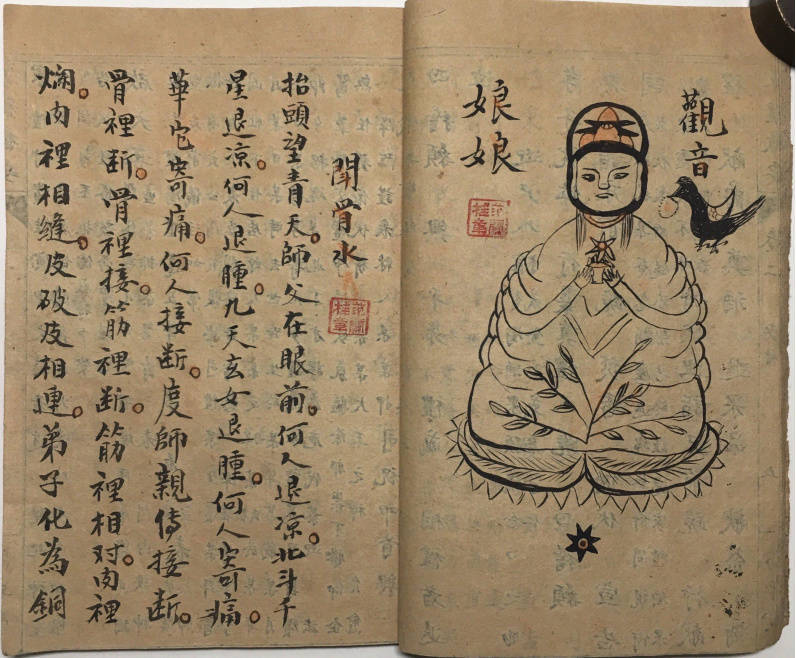 觀音
娘娘
閗骨水
抬頭望青天。師父在眼前。何人退凉。北斗千
星退凉。何人退腫。九天玄女退腫。何人寄痛。
華它寄痛。何人接断。度師親傳接断。
骨裡断。骨裡接。筋裡断。筋裡相对。肉裡
肉裡相縫。皮破皮相連。弟子化為銅